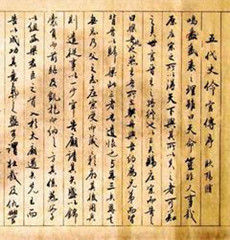 五代史伶官傳序 歐陽脩
嗚呼盛衰之理雖曰天命豈非人事哉
原莊宗之所以得天下與其所以失之者可以知
之矣世言晉王之將終也以三矢賜莊宗而告之
曰梁吾仇也燕王吾所立契丹與吾約為兄弟而
皆背晉以歸梁此三者吾遺恨也與爾三矢爾其
無忘乃父之志莊宗受而藏之於廟其後用兵
則遣從事以一少牢告廟請其矢盛以錦
囊負而前驅及凱旋而納之方其係燕父子
以組函梁君臣之首入於太廟還矢先王而
告以成功其意氣之盛可謂壯哉及仇讎